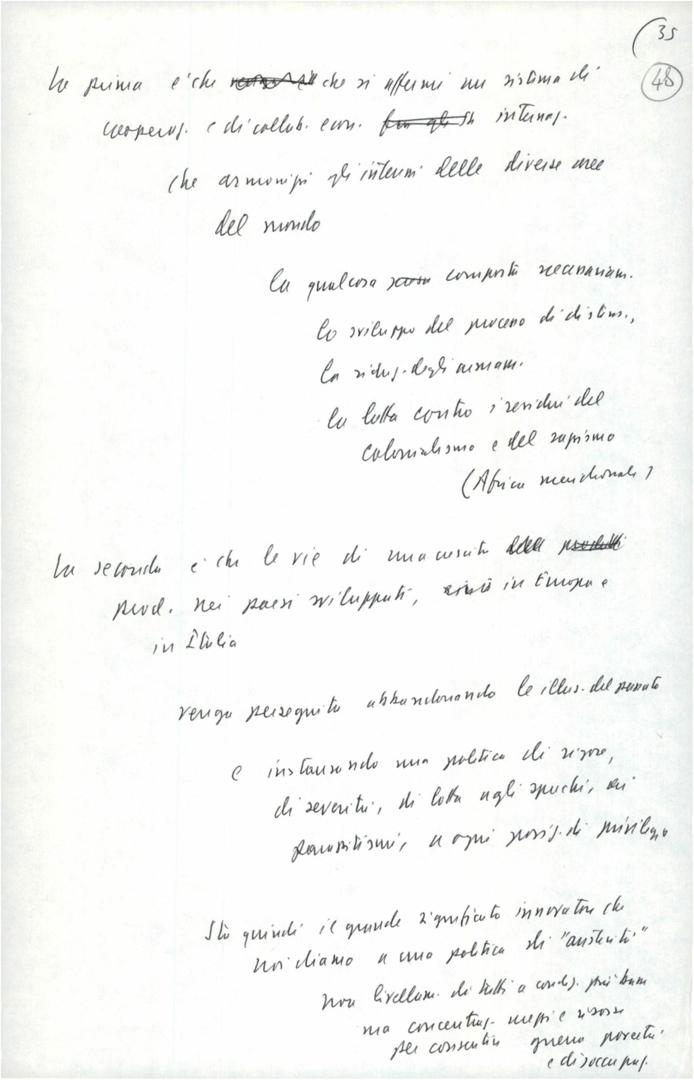 35
48
La prima è che che si affermi un sistema di
cooperaz. e di collab. econ. internaz.
che armonizzi gli interessi delle diverse aree
del mondo
la qual cosa comporta necessariam.
lo sviluppo del processo di distens.,
la riduz. degli armam.
la lotta contro i residui del
colonialismo e del razzismo
(Africa meridionale)
La seconda è che le vie di una crescita
prod. nei paesi sviluppati, in Europa e
in Italia
venga perseguita abbandonando le illus. del passato
e instaurando una politica di rigore,
di severità, di lotta agli sprechi, ai
parassitismi, a ogni posiz. di privilegio
Sta quindi il grande significato innovatore che
noi diamo a una politica di "austerità"
non livellam. di tutti a condiz. più basse
ma concentraz. mezzi e risorse
per consentire guerra povertà
e disoccupaz.